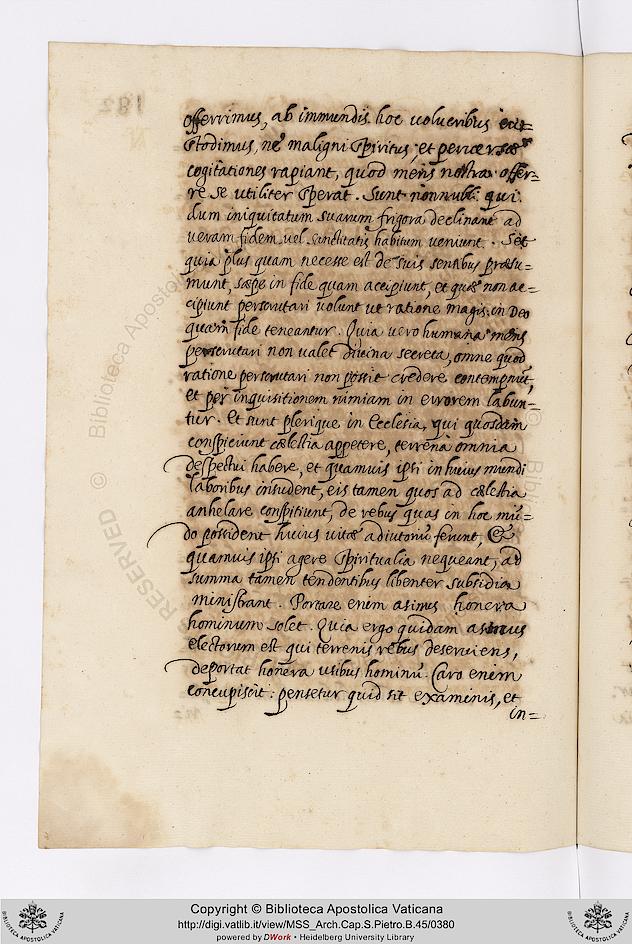 offerrimus, ab immundis hoc volucribus cu=
stodimus, ne maligni spiritus, et perversæ
cogitationes rapiant, quod mens nostra offer=
re se utiliter sperat. Sunt nonnulli qui
dum iniquitatum suarum frigora declinant ad
veram fidem vel sanctitatis habitum veniunt. Set
quia plus quam necesse est de suis sensibus præsu=
munt, sæpe in fide quam accipiunt, et quæ non ac=
cipiunt perscrutari volunt ut ratione magis in Deo
quam fide teneantur. Quia vero humana mens
perscrutari non valet divina secreta, omne quod
ratione perscrutari non possit credere contempnũt,
et per inquisitionem nimiam in errorem labun=
tur. Et sunt plerique in Ecclesia, qui quosdam
conspiciunt cælestia appetere, terrena omnia
despectui habere, et quamuis ipsi in huius mundi
laboribus insudent, eis tamen quos ad cælestia
anhelare conspitiunt, de rebus quas in hoc mũ=
do possident huius vitæ adiutoriũ ferunt, &
quamuis ipsi agere spiritualia nequeant, ad
summa tamen tendentibus libenter subsidia
ministrant. Portare enim asinus honera
hominum solet. Quia ergo quidam asinus
electorum est qui terrenis rebus deserviens,
deportat honera usibus hominũ. Caro enim
concupiscit: pensetur quid sit examinis, et
in=
182
Copyright © Biblioteca Apostolica Vaticana
http://digi.vatlib.it/view/MSS_Arch.Cap.S.Pietro.B.45/0380
powered by DWork • Heidelberg University Library